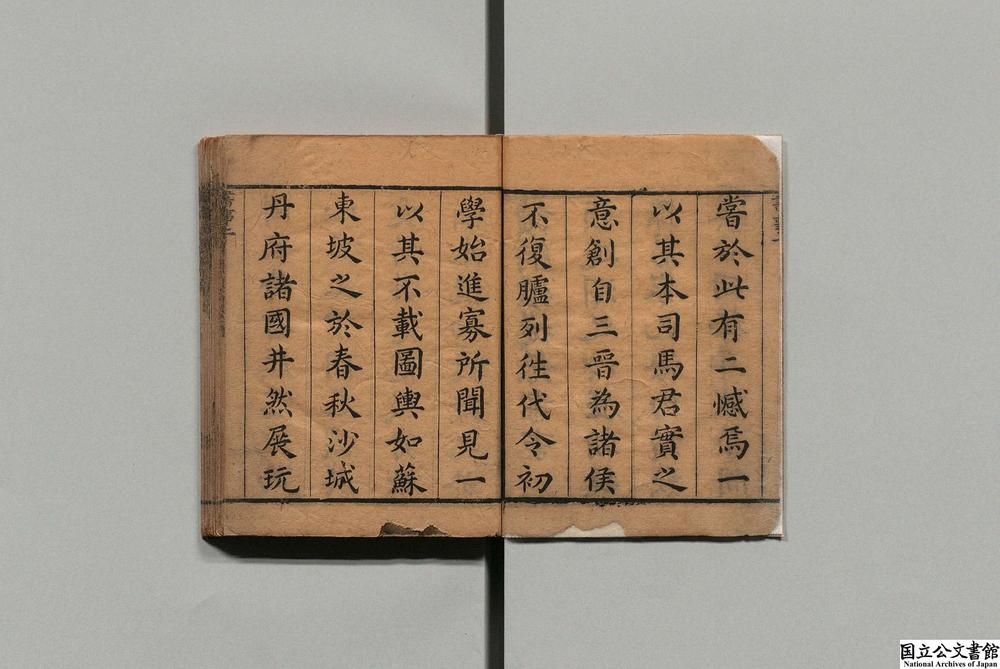 嘗於此有二憾焉一
以其本司馬君實之
意創自三晉為諸侯
不復臚列徃代令初
學始進寡所聞見一
以其不載圖輿如蘇
東坡之於春秋沙城
丹府諸國井然展玩
国立公文書館
National Archives of Japan